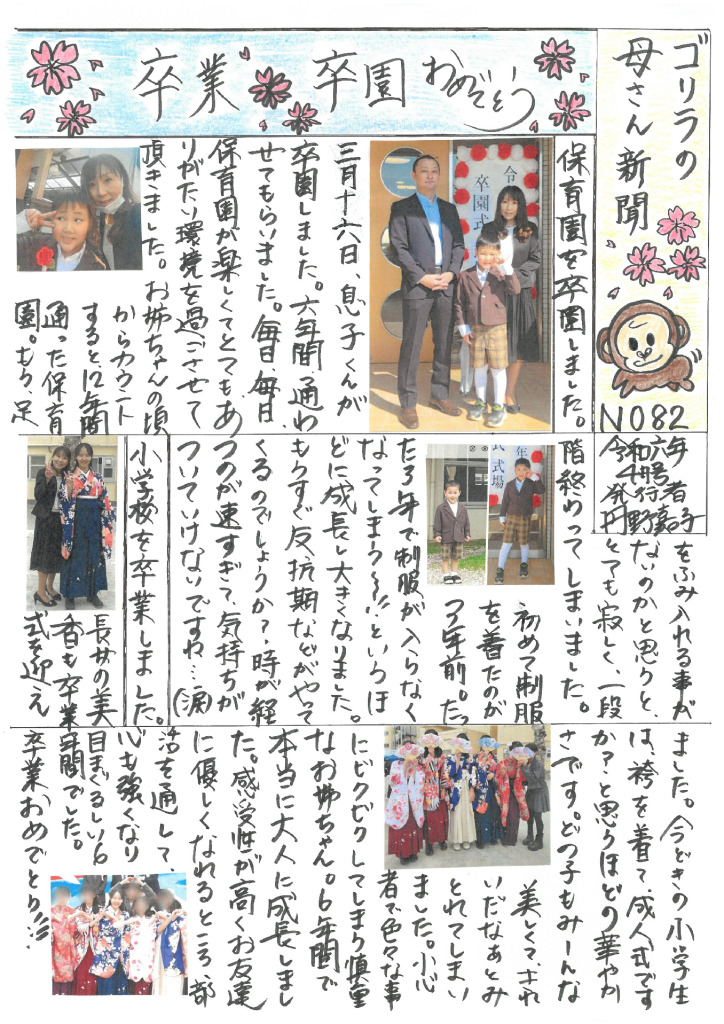 ゴリラの
母さん新聞
NO82
令和六年
4月号
発行者
丹野嘉子
卒業 卒園 おめでとう
保育園を卒園しました。
令
卒園式
三月十六日、息子くんが
卒園しました。六年間通わ
せてもらいました。毎日、毎日
保育園が楽しくてとてもあ
りがたい環境を過ごさせて
頂きました。お姉ちゃんの頃
からカウント
すると、12年間
通った保育
園。もう、足
をふみ入れる事が
ないのかと思うと、
とても寂しく、一段
階終わってしまいました。
年
式場
初めて制服
を着たのが
3年前。たっ
た3年で制服が入らなく
なってしまう〜!!というほ
どに成長し大きくなりました。
もうすぐ反抗期などがやって
くるのでしょうか?時が経
つのが速すぎて、気持ちが
ついていけないですね…(涙)
小学校を卒業しました。
長女の美
香も卒業
式を迎え
ました。今どきの小学生
は、袴を着て、成人式です
か?と思うほどの華やか
さです。どの子もみーんな
美しくて、きれ
いだなぁとみ
とれてしまい
ました。小心
者で色々な事
にビクビクしてしまう慎重
なお姉ちゃん。6年間で
本当に大人に成長しまし
た。感受性が高くお友達
に優しくなれるところ、部
活を通して、
心も強くなり
目まぐるしい6
年間でした。
卒業おめでとう!!!